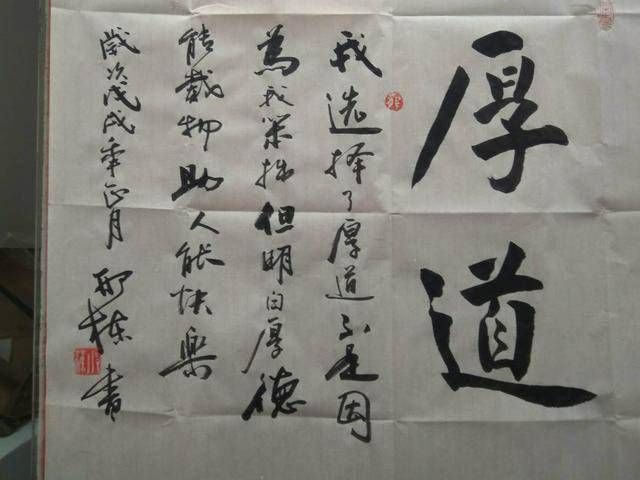 厚道
我选择了厚道不是因
为我笨拙但明白厚德
能载物助人能快乐
岁次戊戌年正月
邢栋书